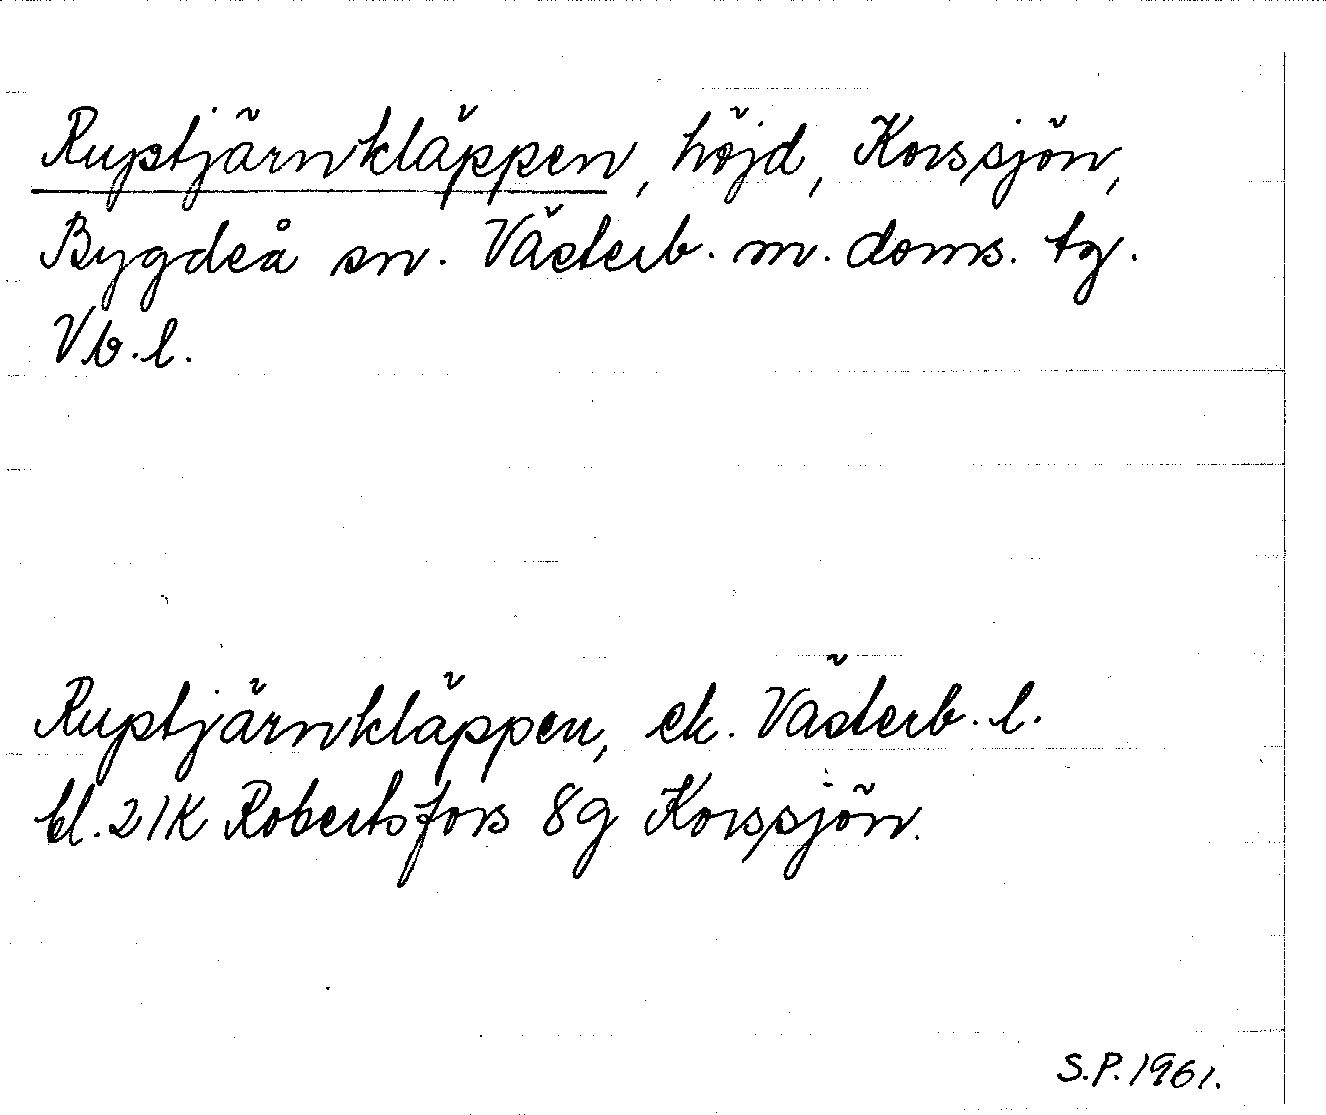 Rustjärnkläppen, höjd, Korssjön,
Bygdeå sn. Västerb. m. doms. tg.
Vb.l.
Rustjärnkläppen, ek. Västerb. l.
bl. 21K Robertsfors 8g Korssjön.
S.P. 1961.